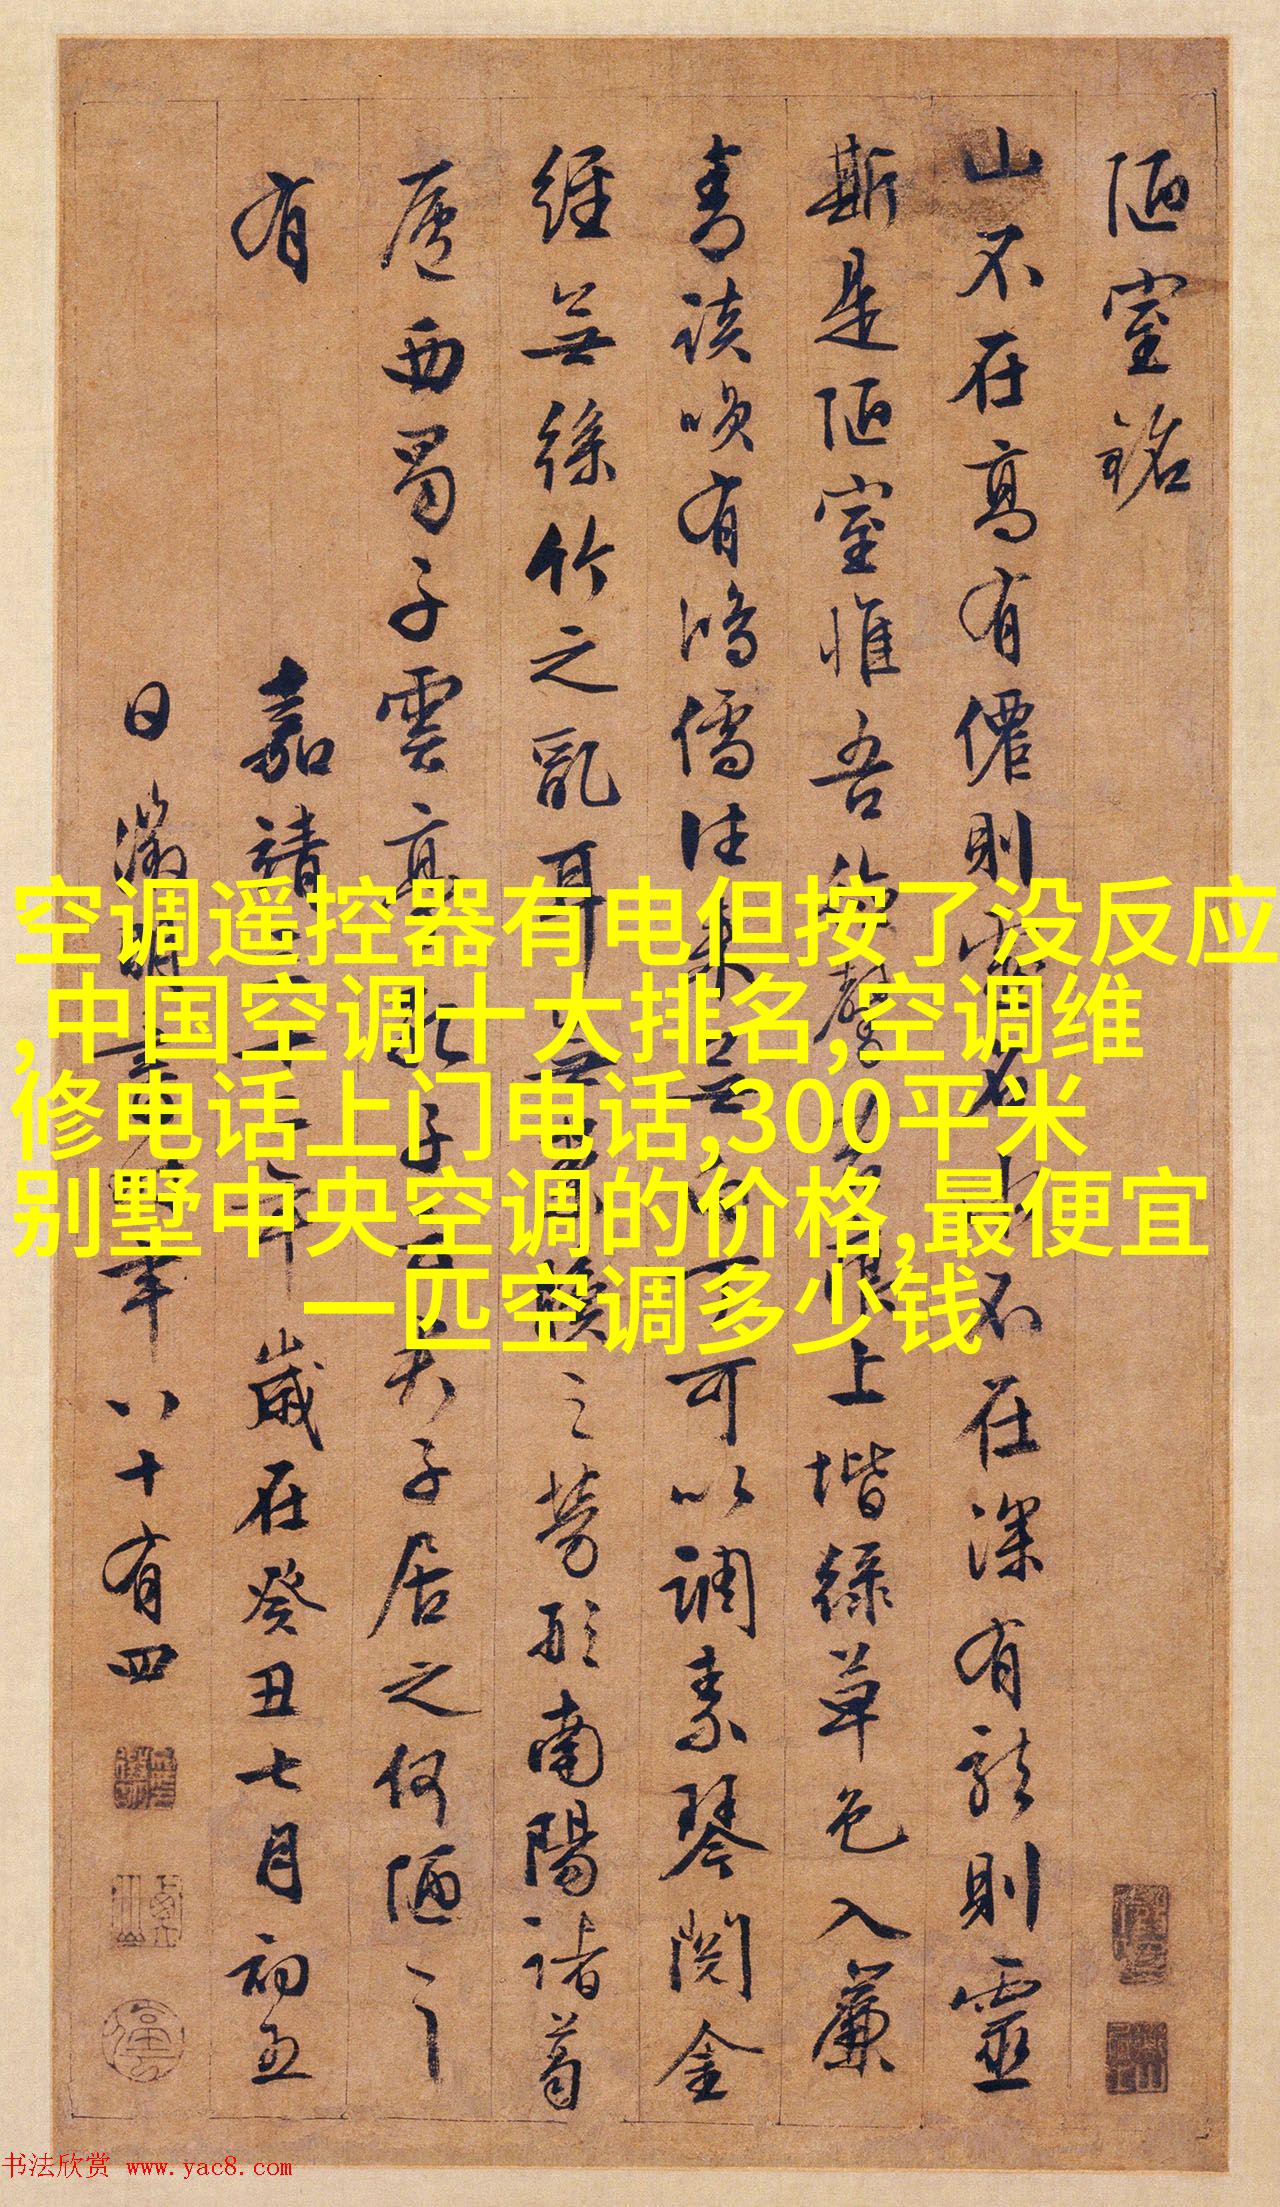 陋室銘
山不在高有僊則名水不在深有龍則靈
斯是陋室惟吾德馨苔痕上堦綠草色入簾
青談咲有鴻儒往來無白丁可以調素琴閱金
經無絲竹之亂耳無案牘之勞形南陽諸葛
廬西蜀子雲亭孔子居之何陋之
有
嘉靖年歲在癸丑七月初五
日徵明書時年八十有四
空调遥控器有电但按了没反应
,中国空调十大排名,空调维
修电话上门电话,300平米
别墅中央空调的价格,最便宜
一匹空调多少钱
书法欣赏 www.yac8.com